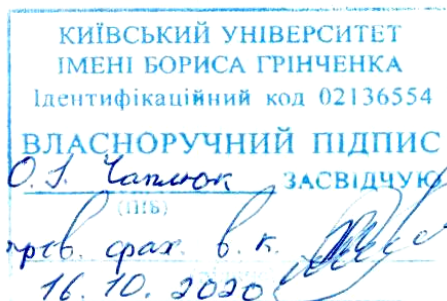 КИЇВСЬКИЙ УНІВЕРСИТЕТ
ІМЕНІ БОРИСА ГРІНЧЕНКА
Ідентифікаційний код 02136554
ВЛАСНОРУЧНИЙ ПІДПИС
О. І. Чаплюк ЗАСВІДЧУЮ
(ПІБ)
фах. в. к.
16. 10. 2020